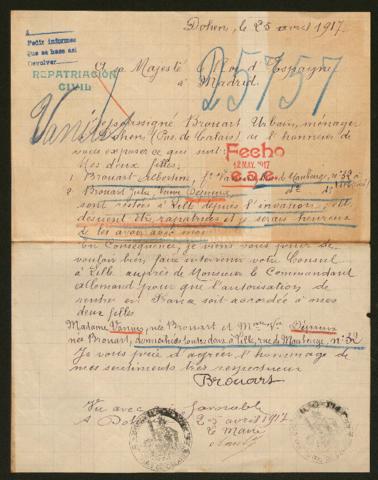 Dohem, le 25 avril 1917.
A
Pedir informes
que se hase así
Devolver
REPATRIACION
CIVIL
A sa Majesté le Roi d'Espagne
à Madrid.
25757
Je soussigné Brouart Urbain, ménager
à Dohem (Pas de Calais) ai l'honneur de
vous exposer ce qui suit:
Mes deux filles:
Fecho
12 MAY. 1917
1 Brouart
Maubeuge, nº 32 à
2 Brouart Julia,
sont restées à Lille depuis l'invasion, et
désirent être rapatriées et je serais heureux
de les avoir avec moi.
En conséquence, je viens vous prier de
vouloir bien faire intervenir votre Consul
à Lille auprès de Monsieur le Commandant
allemand pour que l'autorisation de
rentrer en France soit accordée à mes
deux filles
Madame née Brouart et
née Brouart, domiciliées toutes deux à Lille, rue de Maubeuge, nº 32
Je vous prie d'agréer l'hommage de
mes sentiments très respectueux
Brouart
Vu avec favorable
A Dohem 25 avril 1917
Le Maire